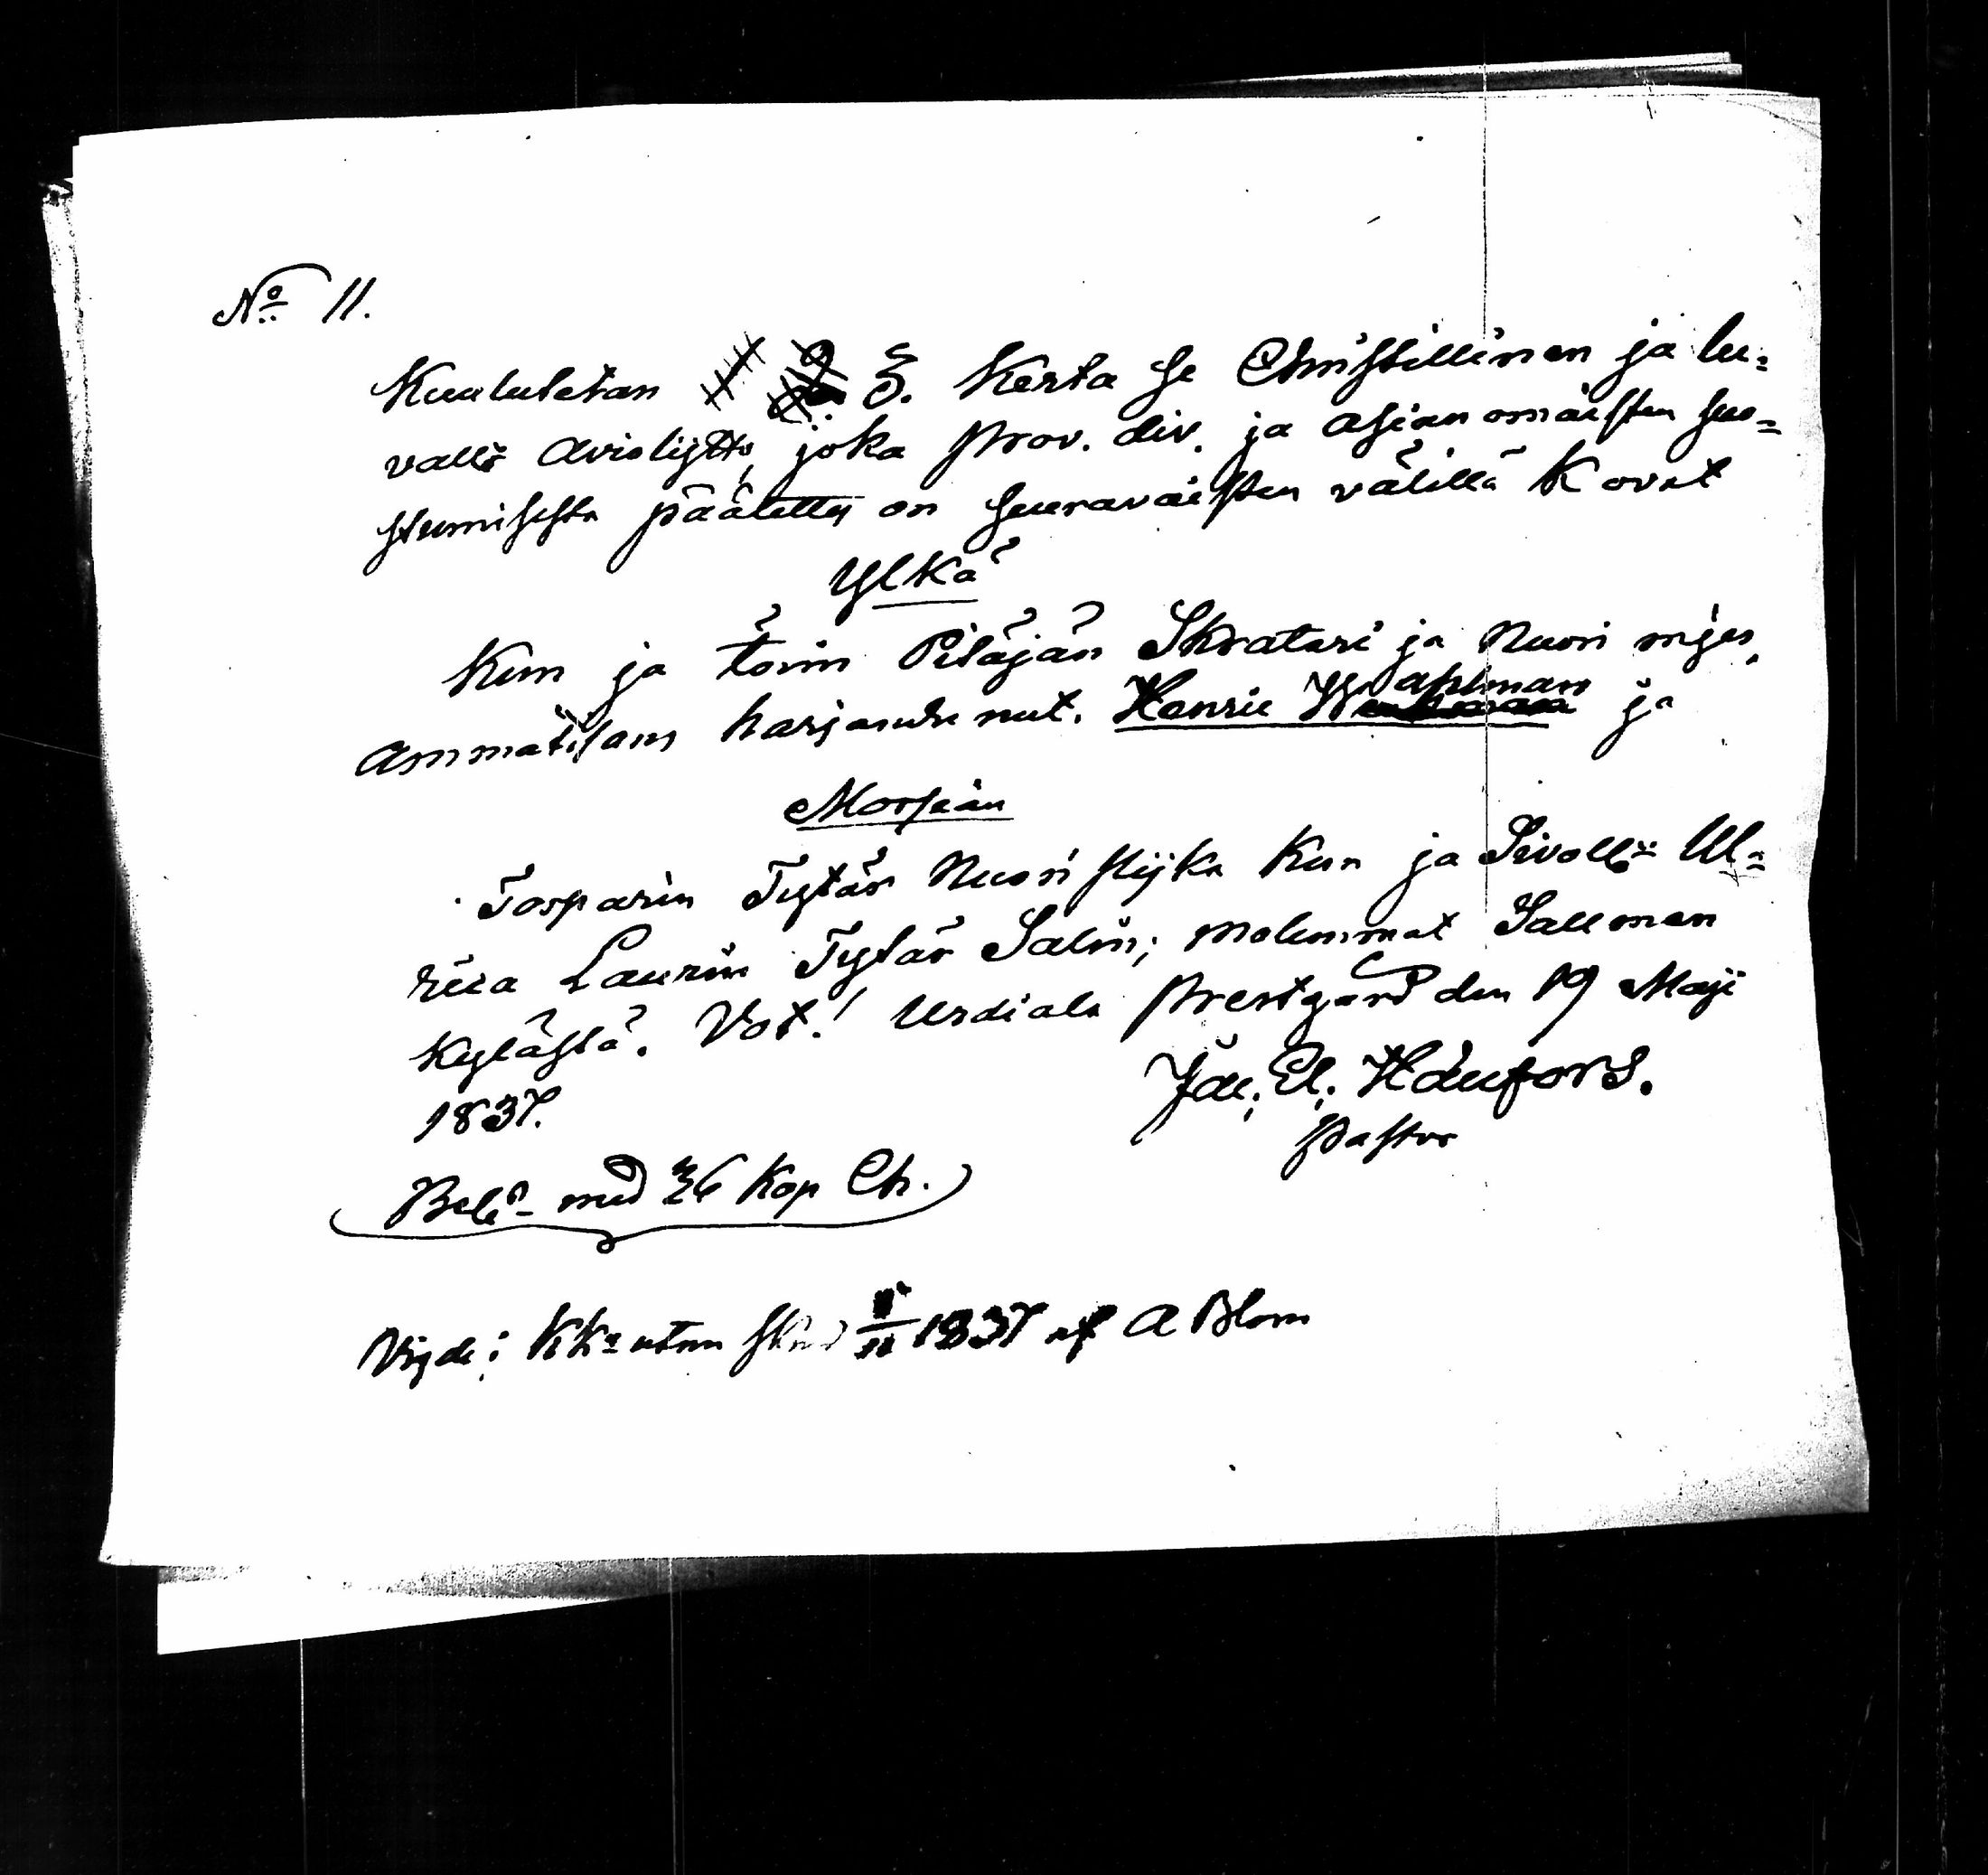 No 11.
Kuulutetan 3. Kerta se Christillinen ja lu=
vallr Avioliјtto, joka Prov. div. ja asianomaisten suo=
stumisesta päätetty on seuravaisten välillä K ovat
Ylkä
Kun ja toim Pitäjän Skratari ja Nuori mjes,
Ammatisans harjandunut. Henric Wahlman ja
Morsian
Torparin Tytär Nuori Pijka Kun ja Sivoll: Ul=
rica Laurin Tytär Salin; molemmat Salmen
Kylästä. Vot! Urdiala Prestgård den 19 Maji
1837.
Jac. El. Häufors.
Pastor
Bet: med 36 Kop Ch.
Vigde; KK: utan 1837 af A Blom